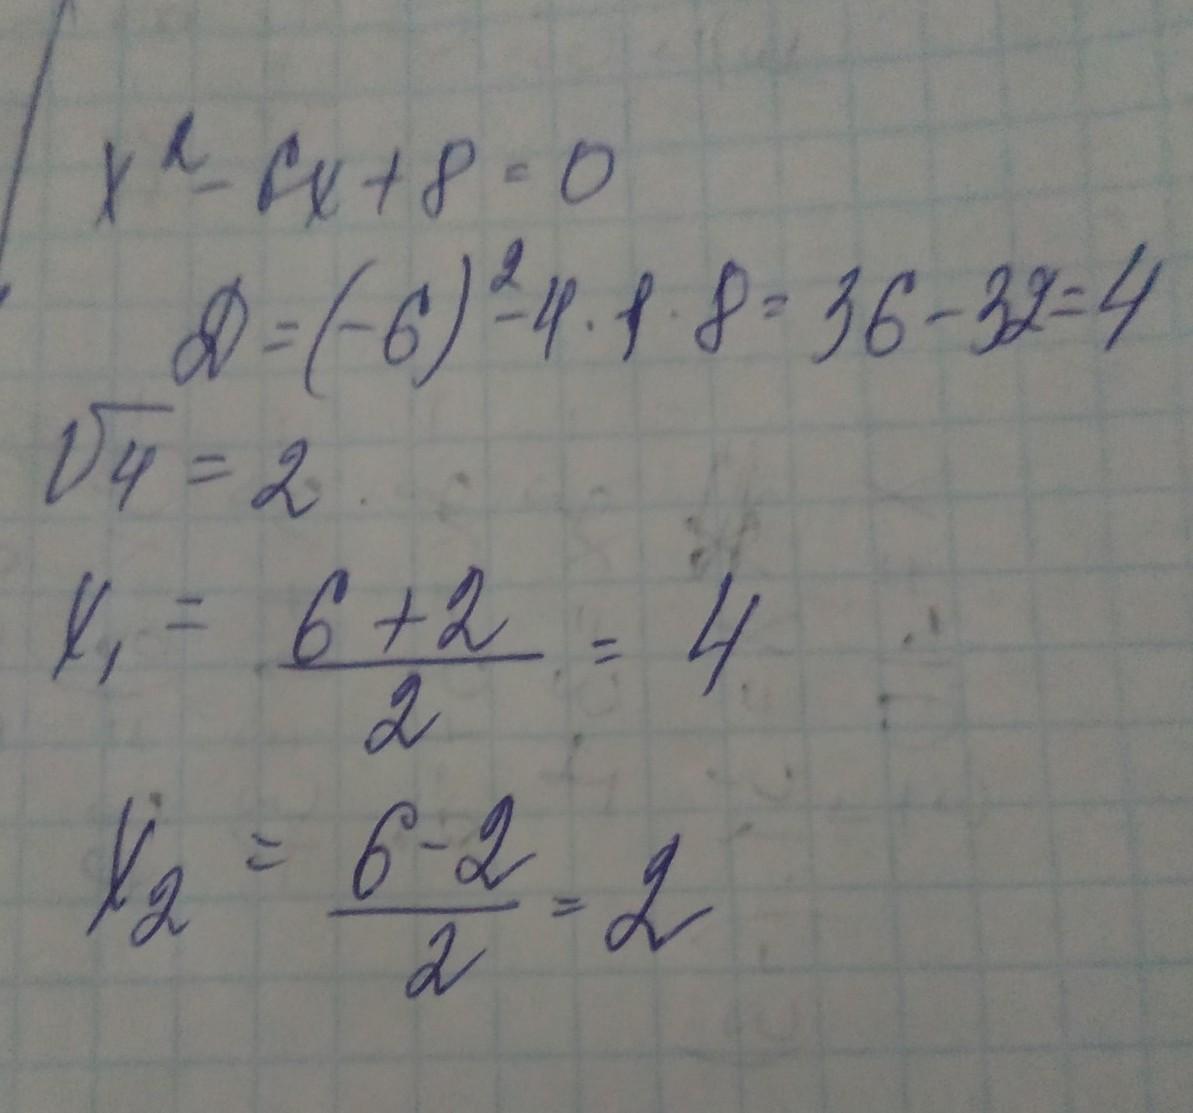 x² - 6x + 8 = 0
D = (-6)² - 4 · 1 · 8 = 36 - 32 = 4
√4 = 2
x₁ = (6 + 2)/2 = 4
x₂ = (6 - 2)/2 = 2